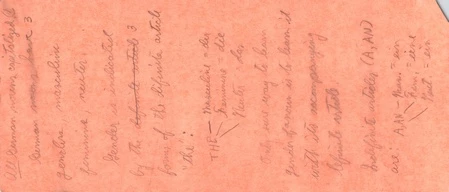 All German nouns capitalized
German nouns have 3
genders, masculine,
feminine, neuter.
Gender is indicated
by the 3
form of the definite article
"the".
THE - Masculine = der
Feminine = die
Neuter = das
Only sure way to learn
gender of noun is to learn it
with its accompanying
definite article
Indefinite articles (A, AN)
are: A, AN - Mas. = ein
Fem. = eine
Neut. = ein